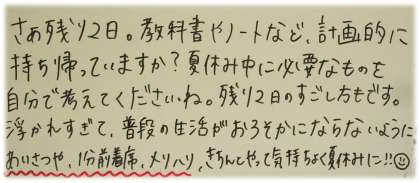 さぁ残り2日。教科書やノートなど、計画的に
持ち帰っていますか？夏休み中に必要なものを
自分で考えてくださいね。残り2日のすごし方もです。
浮かれすぎて、普段の生活がおろそかにならないように
あいさつや、1分前着席、メリハリ、きちんとやって気持ちよく夏休みに!!☺